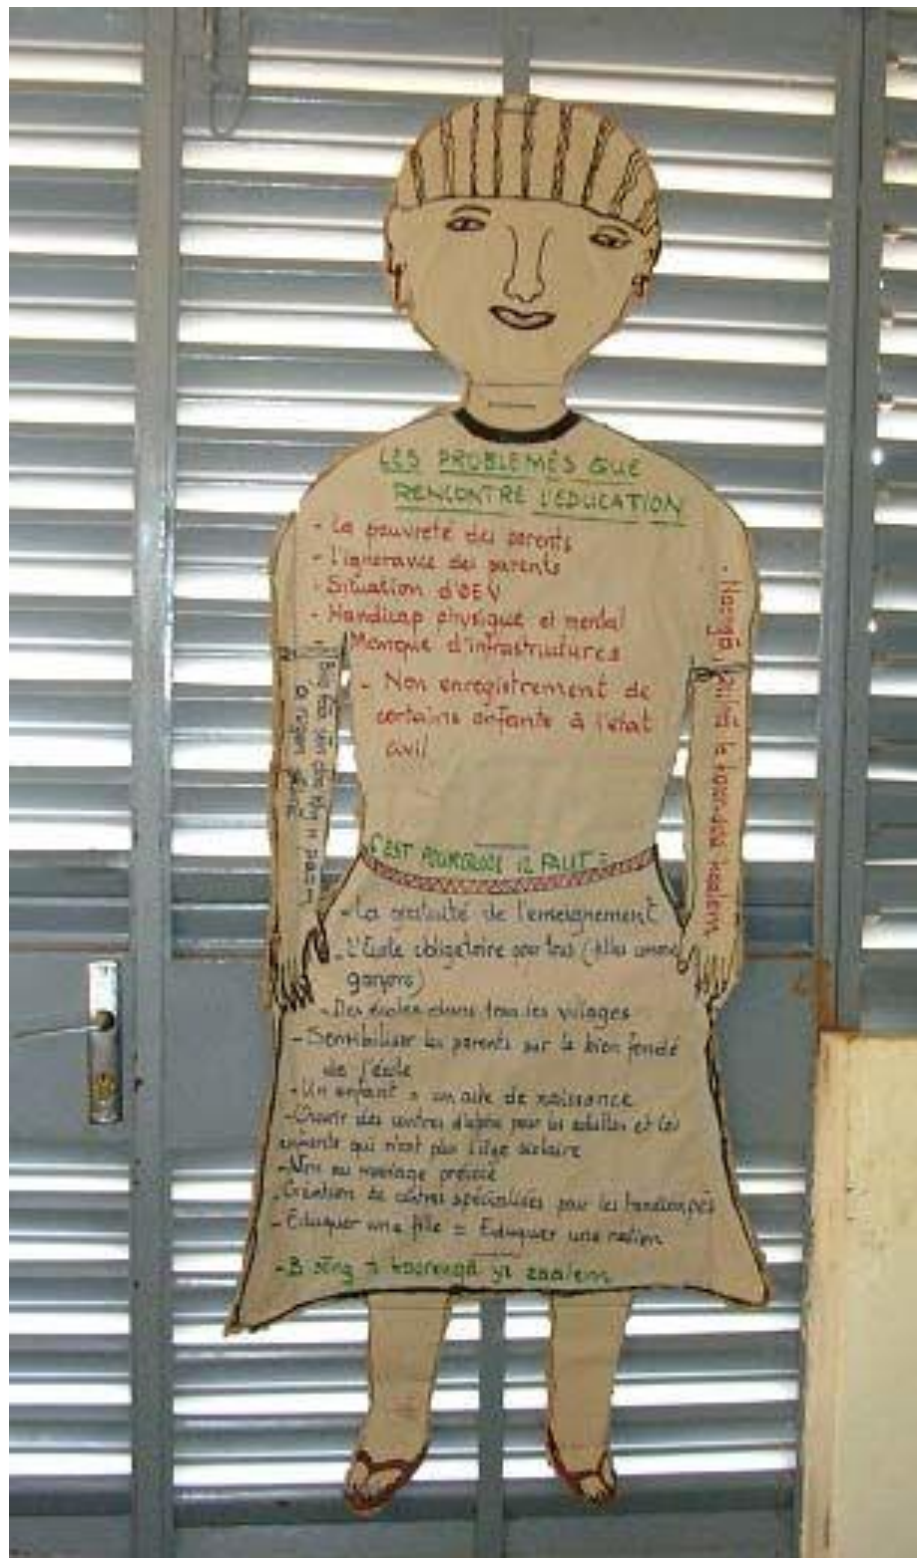 LES PROBLEMES QUE
RENCONTRE L'EDUCATION
- La pauvreté des parents
- L'ignorance des parents
- Situation d'OEV
- Handicap physique et mental
- Manque d'infrastructures
- Non enregistrement de
certains enfants à l'état
civil
C'EST POURQUOI IL FAUT :
- La gratuité de l'enseignement
- L'Ecole obligatoire pour tous (filles comme
garçons)
- Des écoles dans tous les villages
- Sensibiliser les parents sur le bien fondé
de l'école
- Un enfant = un acte de naissance
- Ouvrir des centres pour les adultes et les
enfants qui n'ont pas l'âge scolaire
- Non au mariage précoce
- Création de centres spécialisés pour les handicapés
- Eduquer une fille = Eduquer une nation
- B sõng n yɩ zaalem